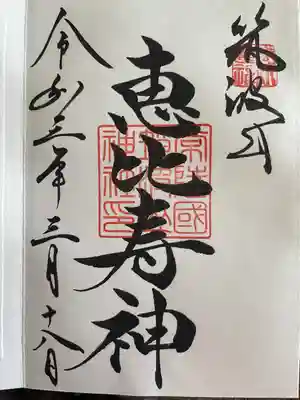 筑波山
恵比寿神
常陸國
神社印
令和三年三月十八日